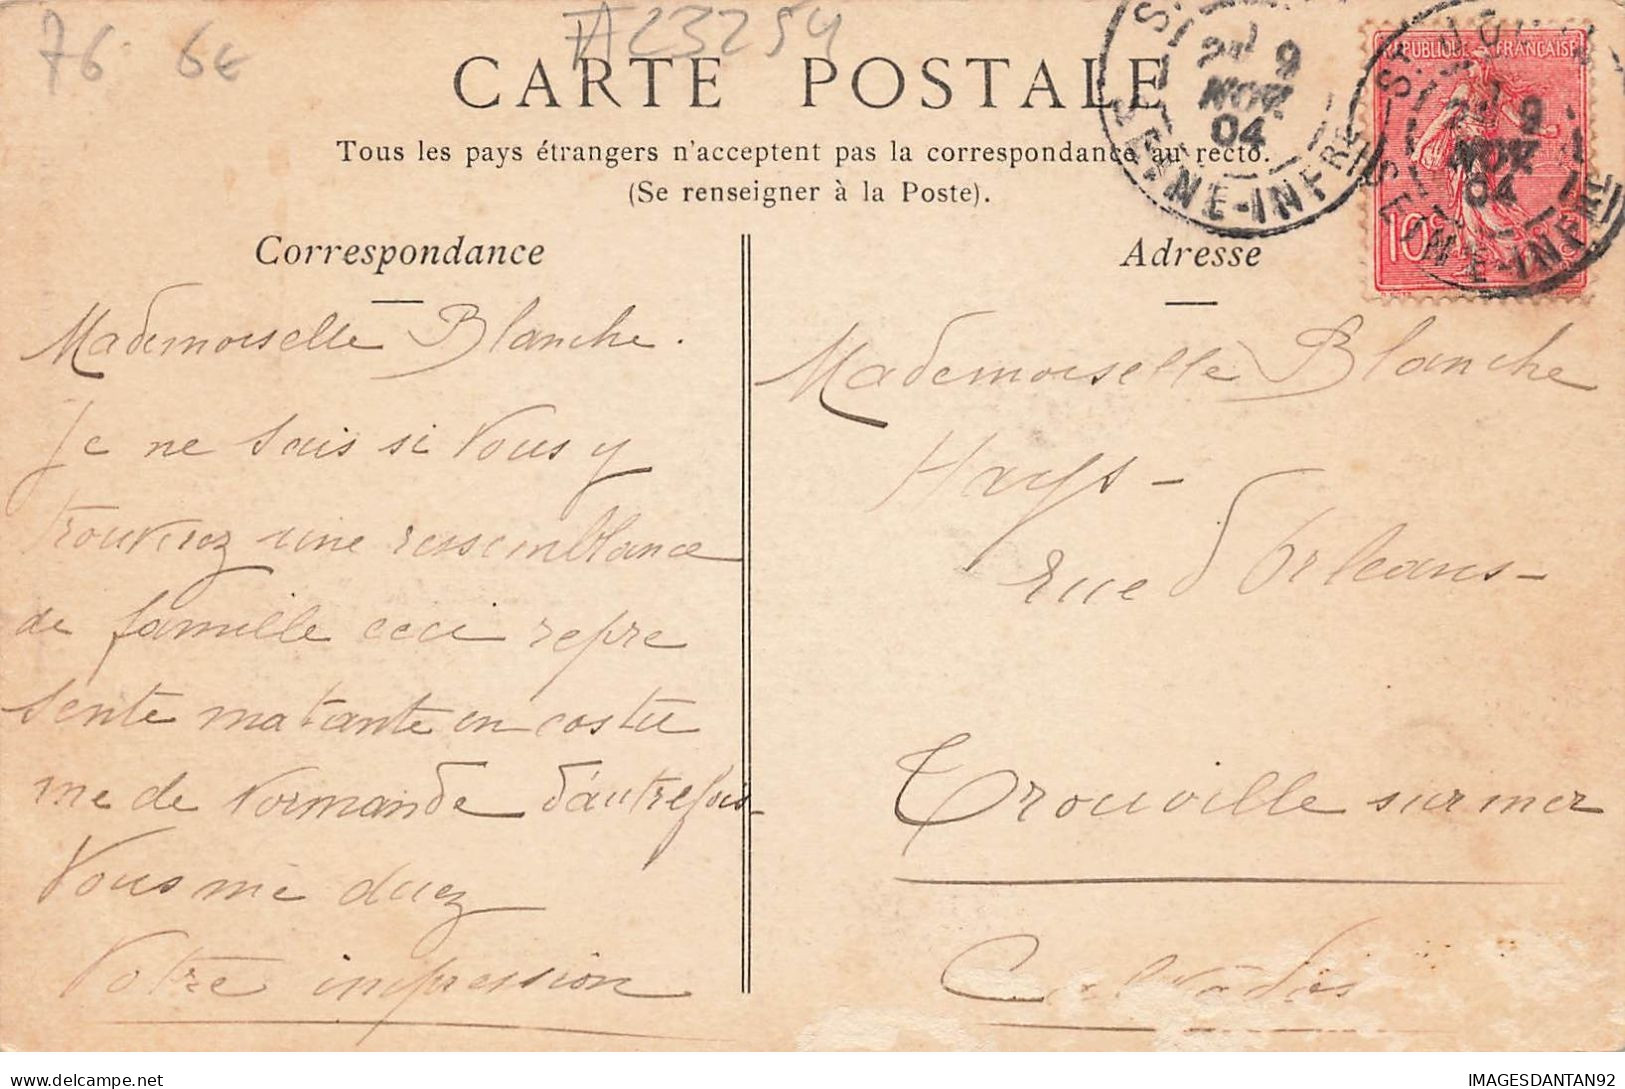 76 6€
#23254
CARTE POSTALE
Tous les pays étrangers n'acceptent pas la correspondance au recto.
(Se renseigner à la Poste).
RÉPUBLIQUE FRANÇAISE
10c
9
NOV.
04
SEINE-INFRE
9
NOV
04
NE-INFRE
Correspondance
Mademoiselle Blanche.
Je ne sais si vous y
trouverez une ressemblance
de famille ceci repre
sente ma tante en costu
me de Normande d'autrefois-
Vous me direz
Votre impression
Adresse
Mademoiselle Blanche
Hays-
rue d'Orleans-
Trouville sur mer
Calvados
IMAGESDANTAN92